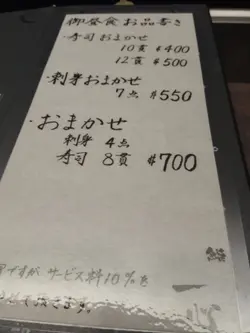 御昼食お品書き
・寿司おまかせ
10貫 $400
12貫 $500
・刺身おまかせ
7点 $550
・おまかせ
刺身 4点
寿司 8貫 $700
ですが サービス料10%を